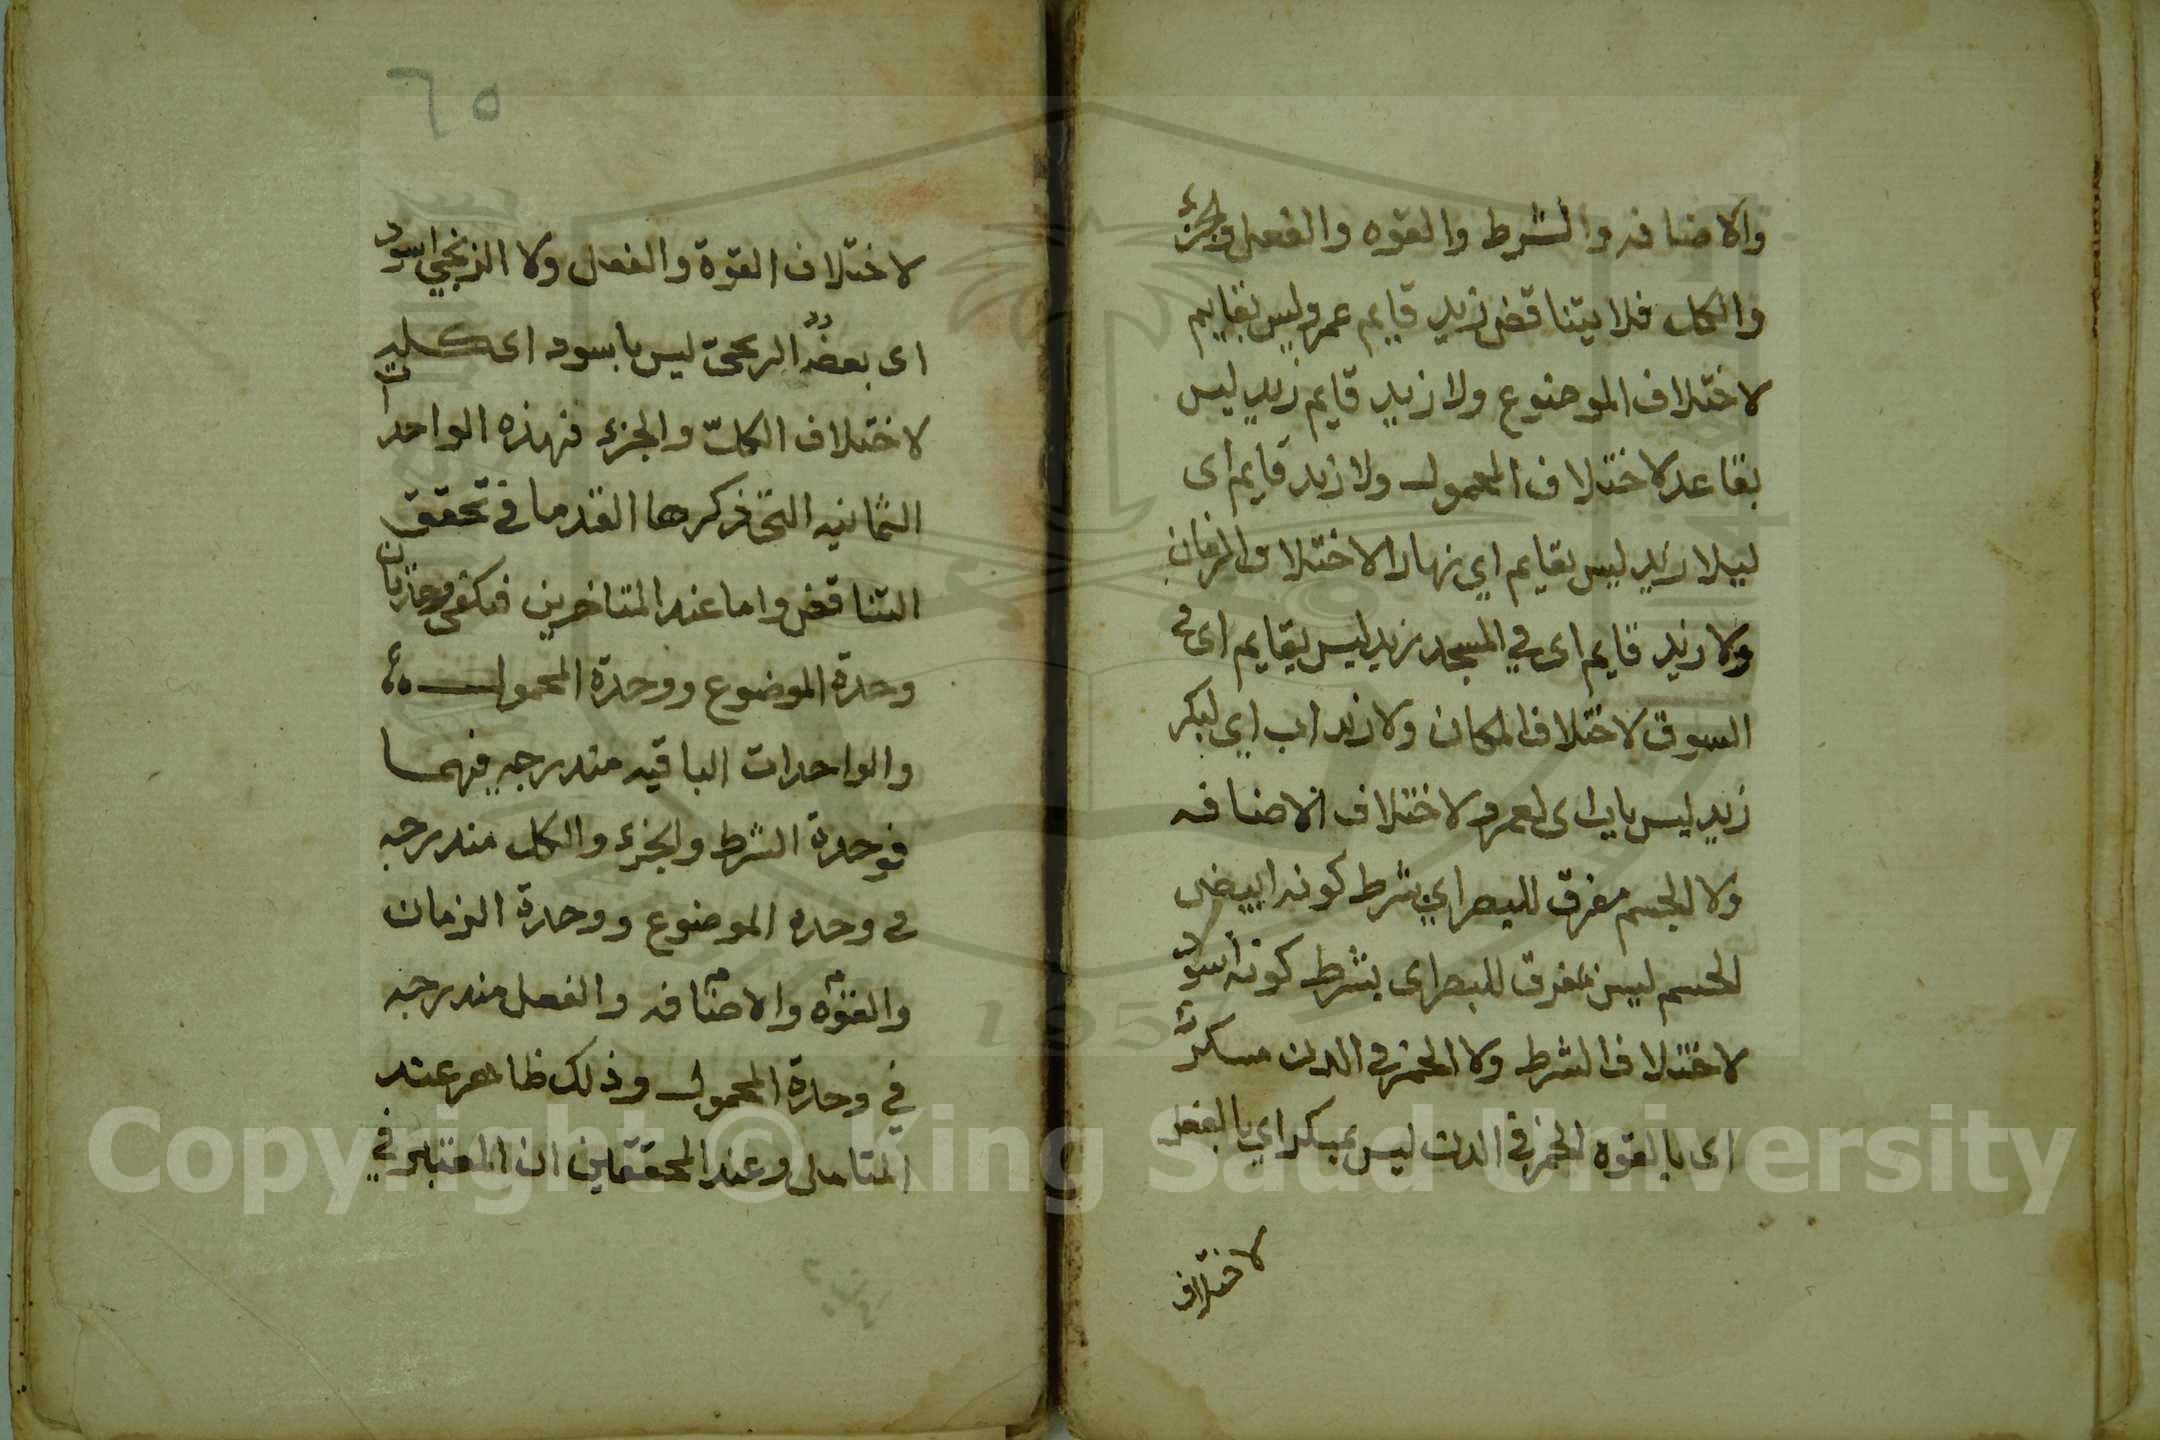 والاضافه والشرط والقوه والفعل والجزء
والكل فلا يتناقض زيد قايم عمرو ليس بقايم
لاختلاف الموضوع ولا زيد قايم زيد ليس
بقاعد لاختلاف المحمول ولا زيد قايم اى
ليلا زيد ليس بقايم اي نهارا لاختلاف الزمان
ولا زيد قايم اى في المسجد زيد ليس بقايم اى في
السوق لاختلاف المكان ولا زيد اب اي لبكر
زيد ليس باب اى لعمرو لاختلاف الاضافه
ولا الجسم مفرق للبصر اي بشرط كونه ابيض
الجسم ليس مفرق للبصر اى بشرط كونه اسود
لاختلاف الشرط ولا الخمر في الدن مسكر
اى بالقوه الخمر في الدن ليس بمسكر اي بالفعل
لاختلاف
٦٥
لاختلاف القوة والفعل ولا الزنجي اسود
اى بعض الزنجى ليس باسود اى كليه
لاختلاف الكل والجزء فهذه الواحدات
الثمانيه التى ذكرها القدما في تحقق
التناقض واما عند المتاخرين فيكفى وحدتان
وحدة الموضوع ووحدة المحمول
والواحدات الباقيه مندرجه فيهما
فوحدة الشرط والجزء والكل مندرجه
في وحده الموضوع ووحدة الزمان
والقوه والاضافه والفعل مندرجه
في وحدة المحمول وذلك ظاهر عند
المتامل وعند المحققين ان المعتبر في
Copyright © King Saud University
1957